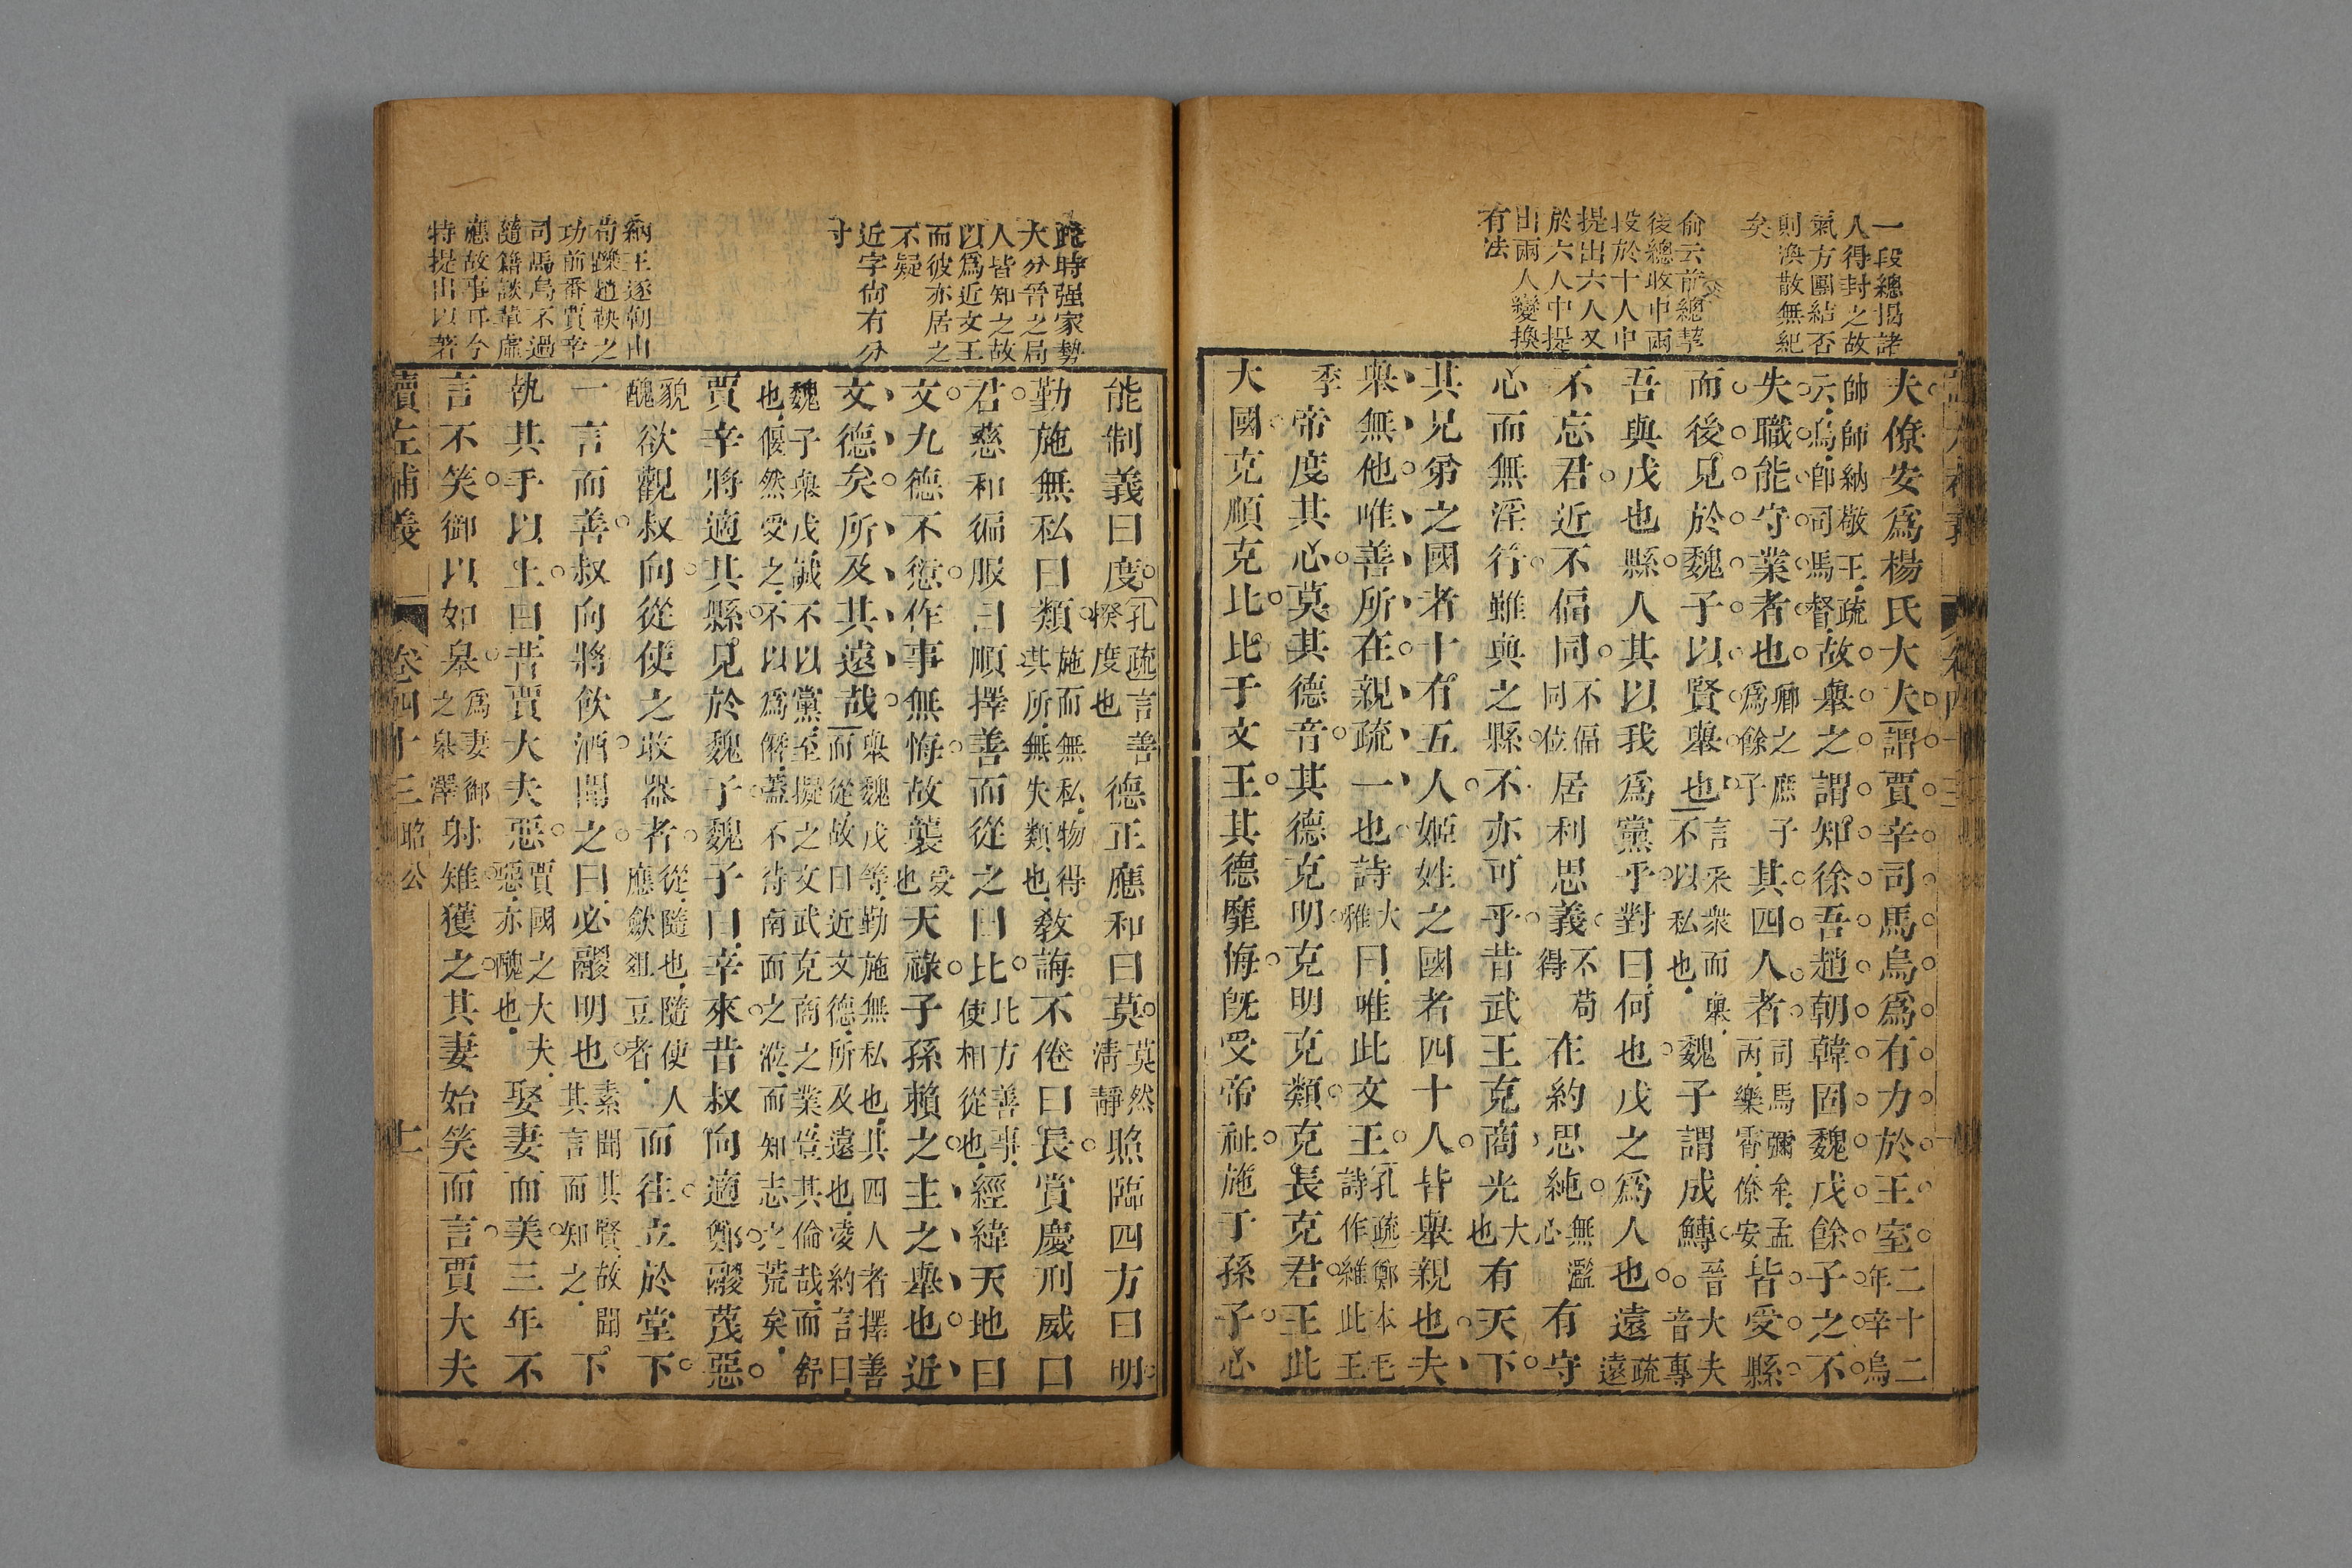 一段總揭諸
人得封之故
氣方團結否
則渙散無紀
矣
俞云前總挈
後總收中兩
段於十人中
提出六人又
於六人中提
出兩人變換
有法
夫僚安爲楊氏大夫謂賈辛司馬烏爲有力於王室二十二年辛烏
帥師納敬王疏云烏卽司馬督故舉之謂知徐吾趙朝韓固魏戊餘子之不
失職能守業者也卿之庶子爲餘子其四人者司馬彌牟孟丙樂霄僚安皆受縣
而後見於魏子以賢舉也言采衆而舉不以私也魏子謂成鱄晉大夫音專
吾與戊也縣人其以我爲黨乎對曰何也戊之爲人也遠疏遠
不忘君近不偪同不偪同位居利思義不苟得在約思純無濫心有守
心而無淫行雖與之縣不亦可乎昔武王克商光大也有天下
其兄弟之國者十有五人姬姓之國者四十人皆舉親也夫
舉無他唯善所在親疏一也詩大雅曰唯此文王孔疏鄭本毛詩作維此王
季帝度其心莫其德音其德克明克明克類克長克君王此
大國克順克比比于文王其德靡悔旣受帝祉施于孫子心
此時强家勢
大分晉之局
人皆知之故
以爲近文王
而彼亦居之
不疑
近字尙有分
寸
納王逐朝由
荀躒趙鞅之
功前番賈辛
司馬烏不過
隨籍談輩虛
應故事耳今
特提出以著
能制義曰度孔疏言善揆度也德正應和曰莫莫然淸靜照臨四方曰明
勤施無私曰類施而無私物得其所無失類也敎誨不倦曰長賞慶刑威曰
君慈和徧服曰順擇善而從之曰比比方善事使相從也經緯天地曰
文九德不愆作事無悔故襲受也天祿子孫賴之主之舉也近
文德矣所及其遠哉舉魏戊等勤施無私也其四人者擇善而從故曰近文德所及遠也凌約言曰
魏子舉戊誠不以黨至擬之文武克商之業豈其倫哉而舒也偃然受之不以爲僭蓋不待南面之涖而知志之荒矣
賈辛將適其縣見於魏子魏子曰辛來昔叔向適鄭鬷蔑惡
貌醜欲觀叔向從使之收器者從隨也隨使人應歛俎豆者而往立於堂下
一言而善叔向將飮酒聞之曰必鬷明也素聞其賢故聞其言而知之下
執其手以上曰昔賈大夫惡賈國之大夫惡亦醜也娶妻而美三年不
言不笑御以如皋爲妻御之皋澤射雉獲之其妻始笑而言賈大夫
讀左補義 卷四十三 昭公 十一